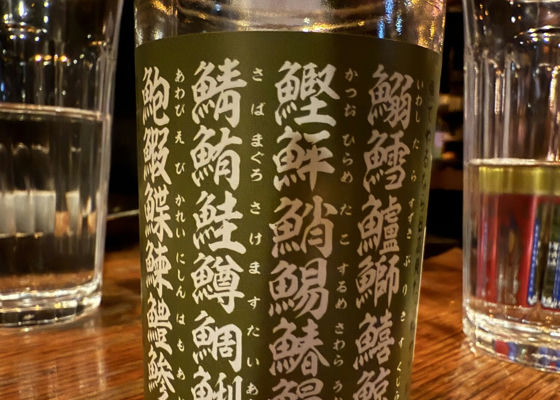 いわし たら すずき ぶり きす くじら
鰯鱈鱸鰤鱚鯨
かつお ひらめ たこ するめ さわら う
鰹鮃鮹鯣鰆鰻
さば まぐろ さけ ます たい あ
鯖鮪鮭鱒鯛鯏
あわび えび かれい にしん はも あ
鮑鰕鰈鰊鱧鰺